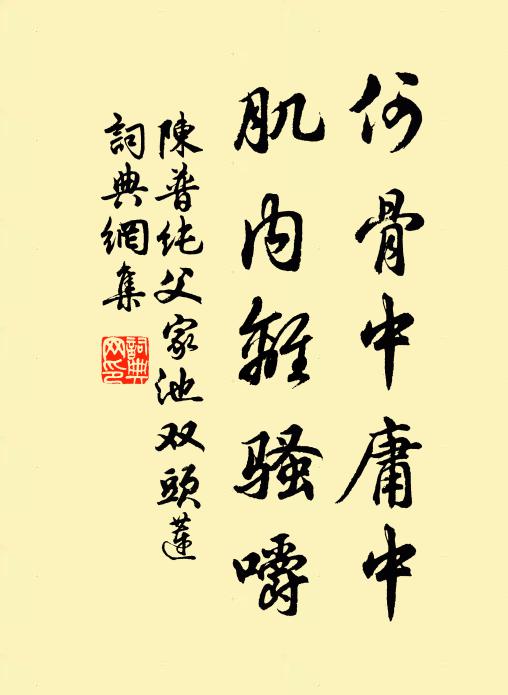 何骨中庸中
肌内離騷嚼
陳普纯父家池双頭蓮
詞典網集
詞典网印